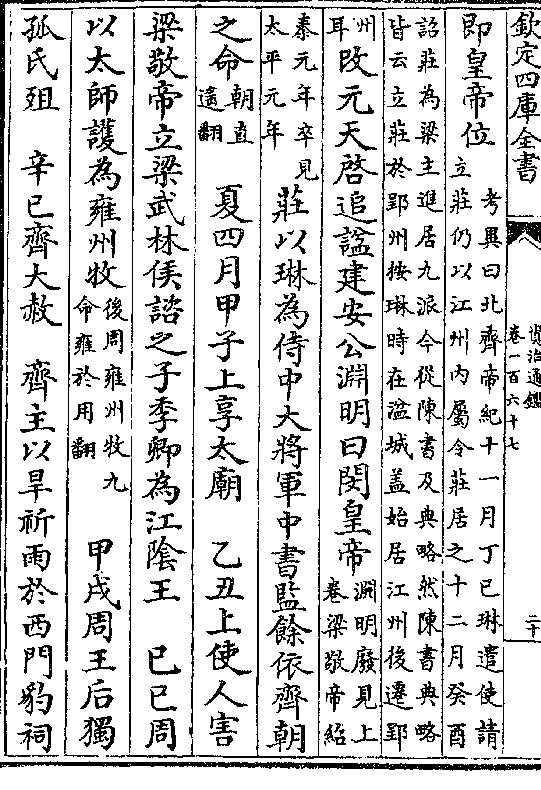 欽定四庫全書
資治通鑑
卷一百六十七
二十
即皇帝位
考異曰北齊帝紀十一月丁巳琳遣使請
立莊仍以江州内屬令莊居之十二月癸酉
詔莊為梁主進居九派今從陳書及典略然陳書典略
皆云立莊於郢州按琳時在湓城盖始居江州後遷郢
州
耳
改元天啓追諡建安公淵明曰閔皇帝
淵明廢見上
卷梁敬帝紹
泰元年卒見
太平元年
莊以琳為侍中大將軍中書監餘依齊朝
之命
朝直
遥翻
夏四月甲子上享太廟　乙丑上使人害
梁敬帝立梁武林侯諮之子季卿為江陰王　己巳周
以太師護為雍州牧
後周雍州牧九
命雍於用翻
甲戌周王后獨
孤氏殂　辛巳齊大赦　齊主以旱祈雨於西門豹祠